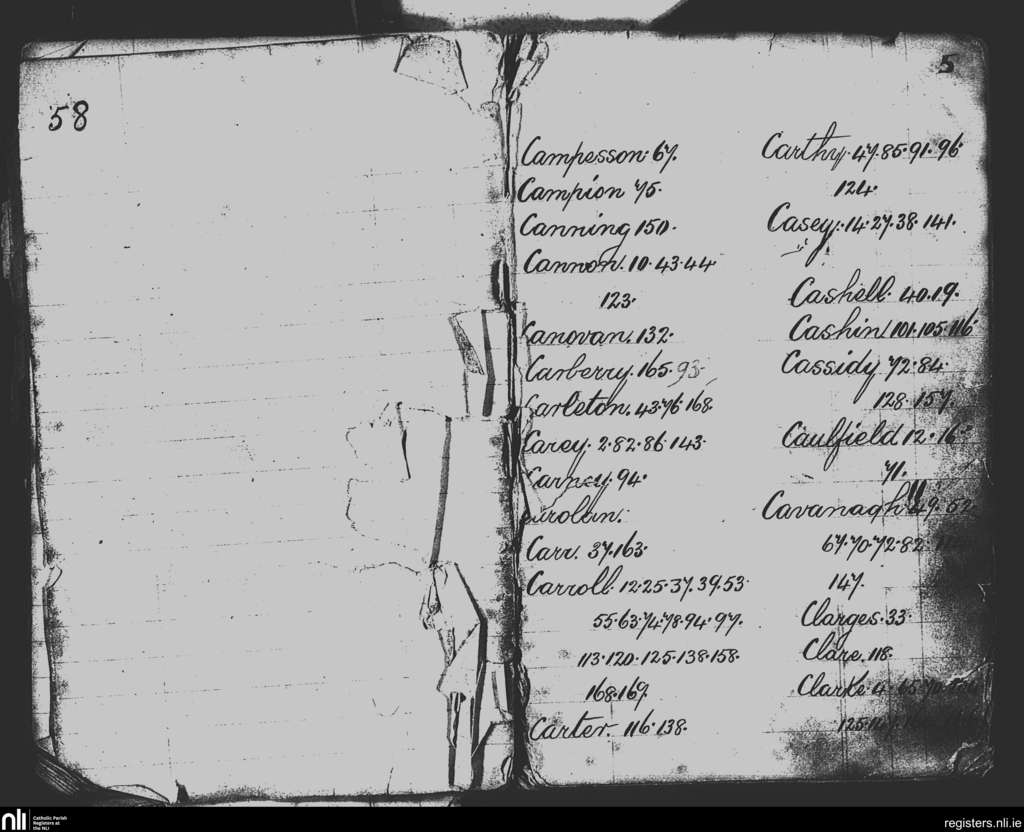 58
5
Campesson 67.
Campion 75.
Canning 150.
Cannon. 10. 43. 44
123.
Canovan. 132.
Carberry. 165. 93.
Carleton. 43. 76. 168.
Carey. 2. 82. 86. 143.
Carney. 94.
Carolan.
Carr. 37. 163.
Carroll. 12. 25. 37. 39. 53
55. 63. 74. 78. 94. 97.
113. 120. 125. 138. 158.
168. 169.
Carter. 116. 138.
Carthy. 47. 85. 91. 96
124.
Casey. 14. 27. 38. 141.
Cashell. 40. 19.
Cashin 101. 105. 116
Cassidy 72. 84
128. 157.
Caulfield 12. 16
71.
Cavanagh 49. 52
67. 70. 72. 82.
147.
Clarges. 33.
Clare. 118.
Clarke. 4. 65. 70.
125. 147.
nli
Catholic Parish
Registers at
the NLI
registers.nli.ie